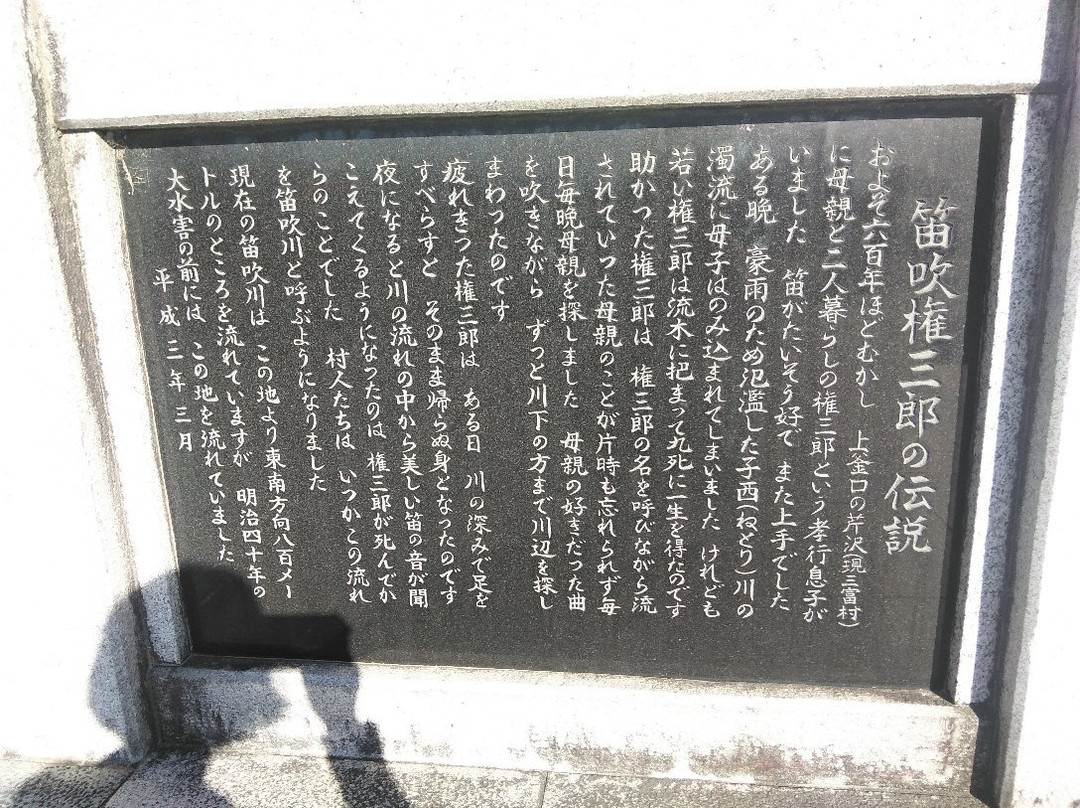 笛吹権三郎の伝説
およそ六百年ほどむかし 上釜口の芹沢(現三富村)
に母親と二人暮らしの権三郎という孝行息子が
いました 笛がたいそう好で また上手でした
ある晩 豪雨のため氾濫した子酉(ねとり)川の
濁流に母子はのみ込まれてしまいました けれども
若い権三郎は流木に把まって九死に一生を得たのです
助かった権三郎は 権三郎の名を呼びながら流
されていった母親のことが片時も忘れられず毎
日毎晩母親を探しました 母親の好きだった曲
を吹きながら ずっと川下の方まで川辺を探し
まわったのです
疲れきった権三郎は ある日 川の深みで足を
すべらすと そのまま帰らぬ身となったのです
夜になると川の流れの中から美しい笛の音が聞
こえてくるようになったのは 権三郎が死んでか
らのことでした 村人たちは いつかこの流れ
を笛吹川と呼ぶようになりました
現在の笛吹川は この地より東南方向八百メー
トルのところを流れていますが 明治四十年の
大水害の前には この地を流れていました
平成三年三月